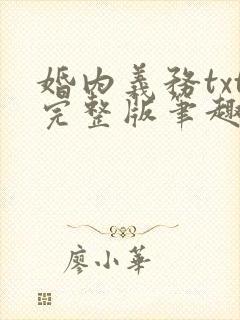 婚内義務txt
完整版筆趣
廖小華